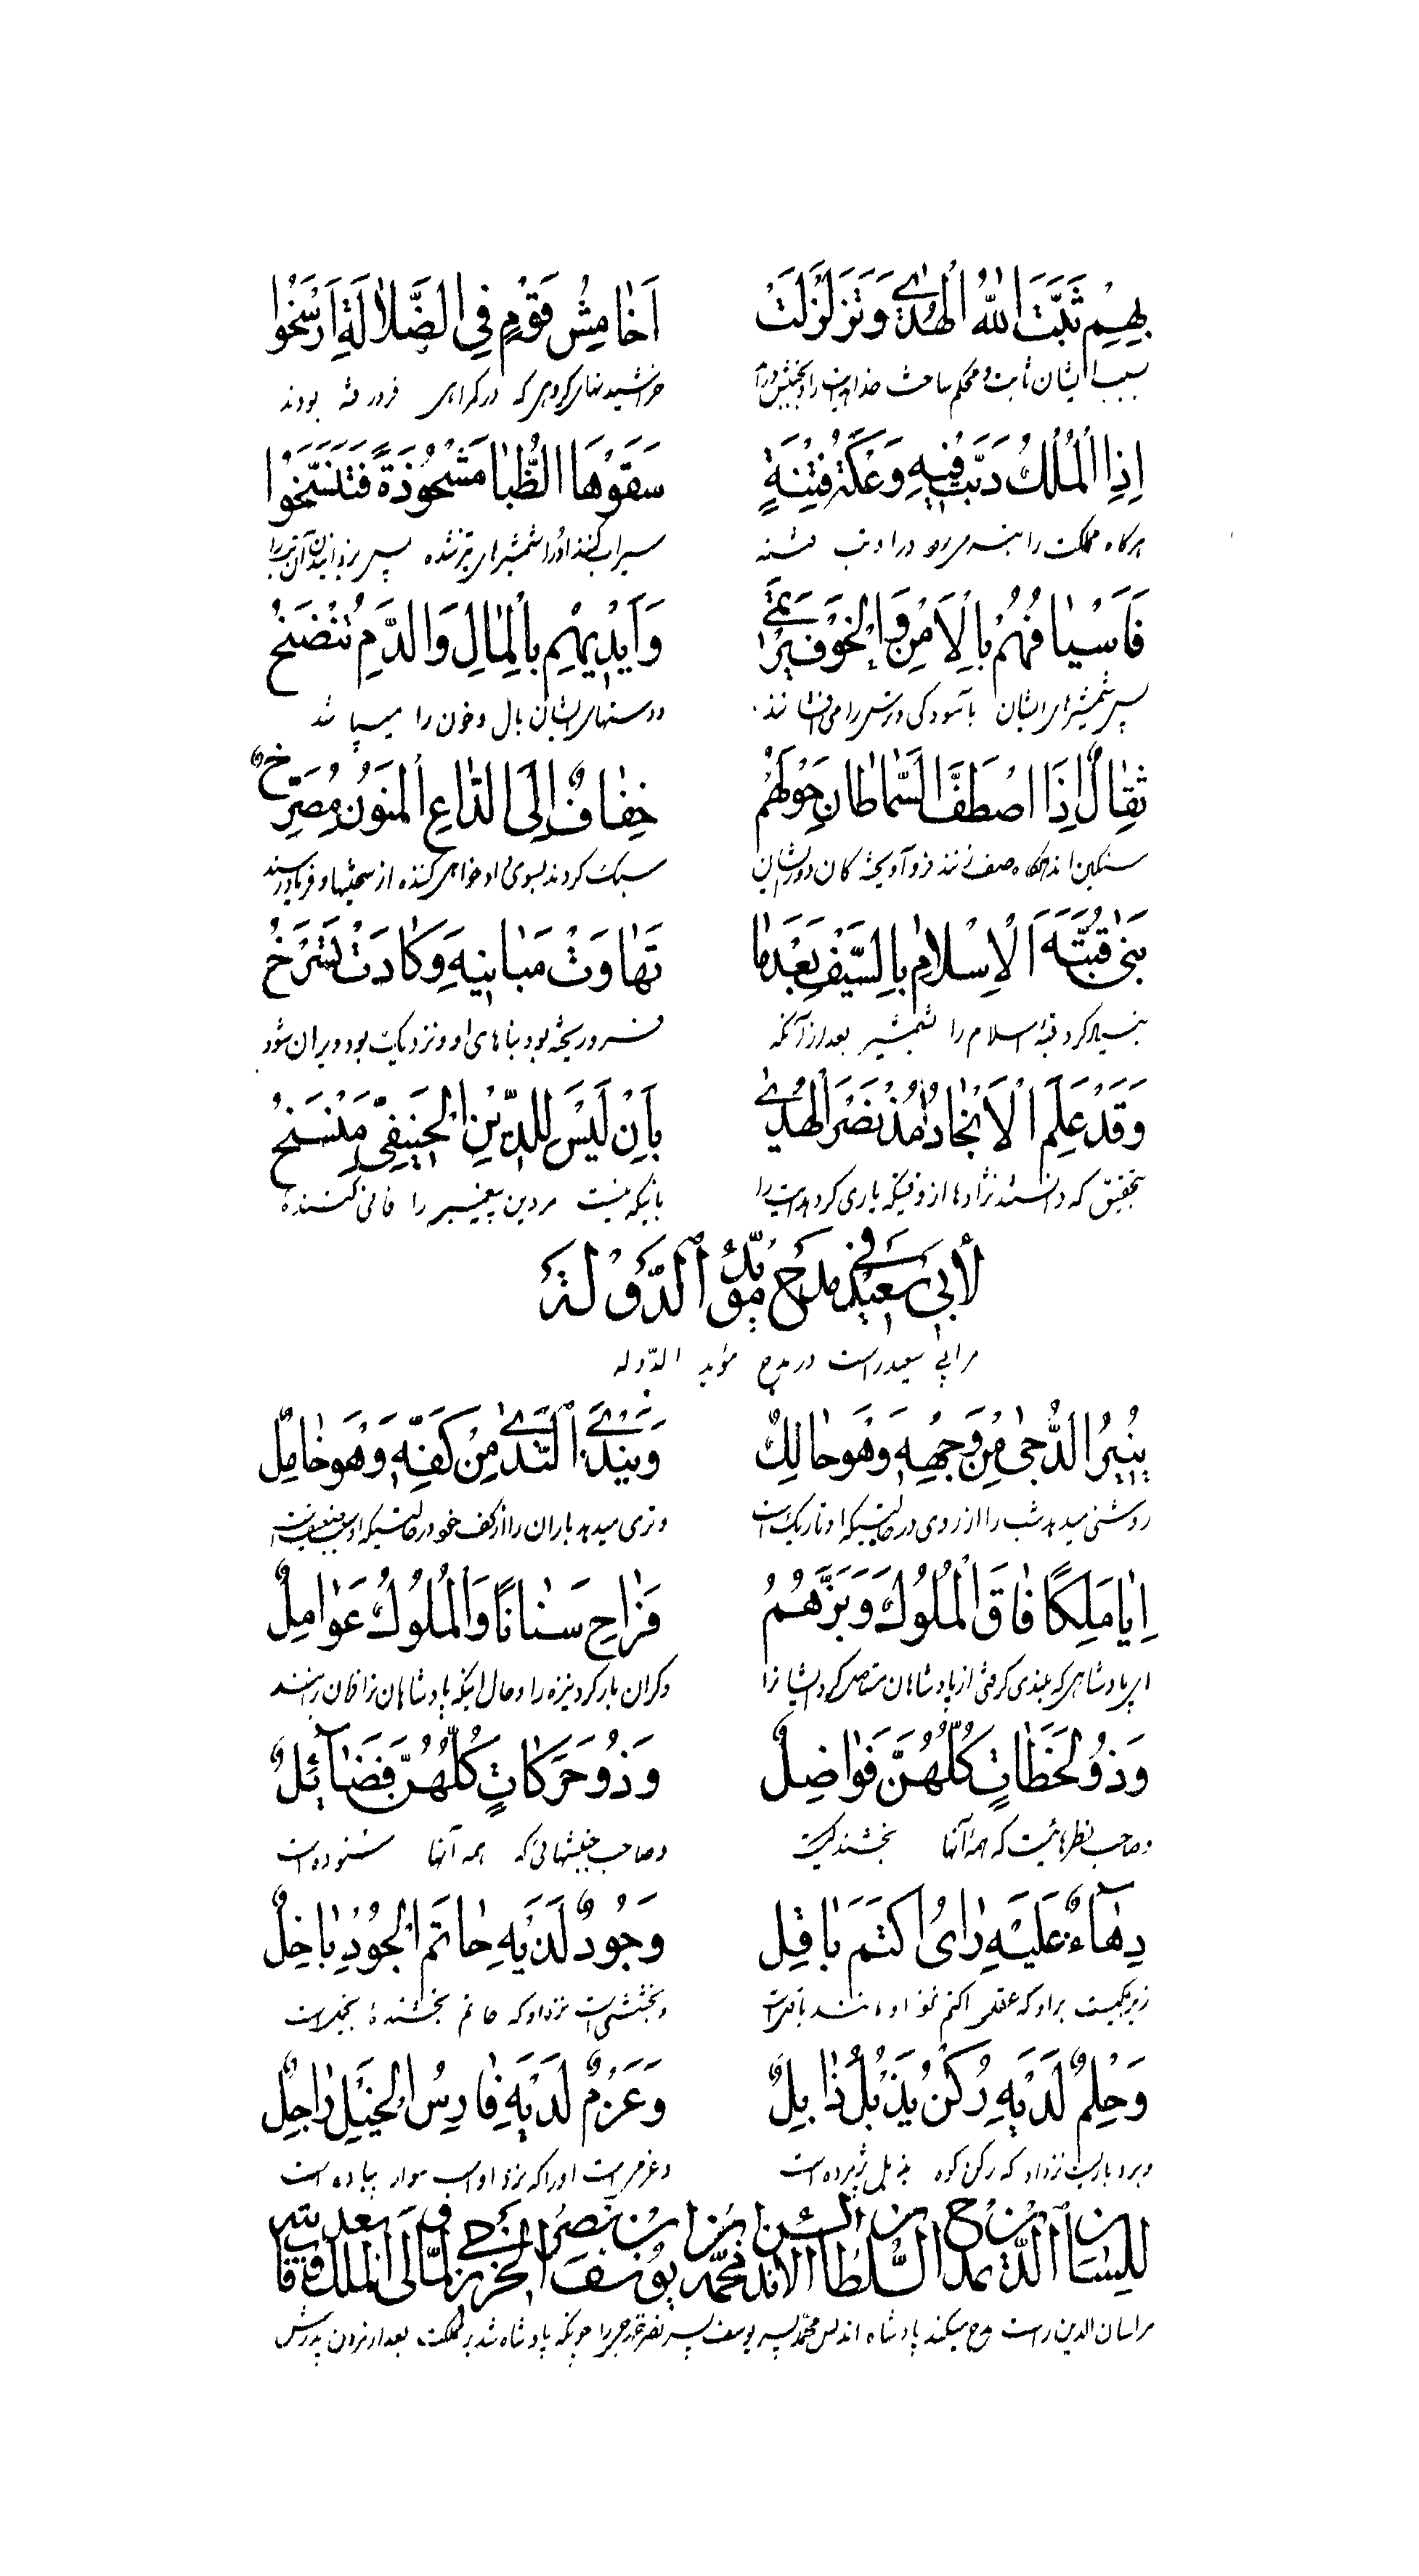 بِهِمْ ثَبَّتَ اللهُ الْهُدٰى وَتَزَلْزَلَتْ
اَخٰامِشُ قَوْمٍ فِي الضَّلٰالَةِ اَرْسَخُوا
بسبب ایشان ثابت و محکم ساخت خدا هدایت را و بجنبش درآمد
خراشیدنهای گروهی که در گمراهی فرو رفته بودند
اِذِ الْمُلْكُ دَبَّتْ فِيْهِ وَعْكَةُ فِتْنَةٍ
سَقَوْهَا الظُّبٰا مَشْحُوْذَةً فَتَسَّخُوْا
هرگاه مملکت را در او تب فتنه
سیراب کنند او را شمشیرهای تیز شده پس
فَاَسْيٰافُهُمْ بِالْاَمْنِ وَالْخَوْفِ تَرْتَمِيْ
وَاَيْدِيْهِمِ بِالْمٰالِ وَالدَّمِ تُنْضَخُ
پس شمشیرهای ایشان بآسودگی و ترس را می
و دستهای ایشان بمال و خون را میپاشد
ثِقٰالٌ اِذَا اصْطَفَّ السِّمٰاطٰانِ حَوْلَهُمْ
خِفٰافٌ اِلَى الدّٰاعِ الْمَنُوْنِ مُصَرِّخٌ
سنگین‌اند هرگاه صف زنند
سبک گردند بسوی
بَنٰى قُبَّةَ الْاِسْلٰامِ بِالسَّيْفِ بَعْدَمٰا
تَهٰاوَتْ مَبٰانِيْهَ وَكٰادَتْ تَشَرَّخُ
بنیاد کرد قبه اسلام را بشمشیر بعد از آنکه
فرو ریخته بود بناهای او و نزدیک بود ویران شود
وَقَدْ عَلِمَ الْاَنْجٰادُ مُذْ نَصَرَ الْهُدٰى
بِاَنْ لَيْسَ لِلدِّيْنِ الْحَنِيْفِيِّ مَنْسَخُ
بتحقیق که دانستند نژادها از وقتیکه یاری کرد هدایت را
بانیکه نیست مر دین پیغمبر را فانی کننده
لأبي سعيد في مدح مؤيد الدَّوْلة
مر ابی سعید راست در مدح مؤید الدّوله
يُنِيْرُ الدُّجٰى مِنْ وَجْهِهِ وَهُوَ حٰالِكٌ
وَيَنْدَى النَّدٰى مِنْ كَفِّهِ وَهُوَ خٰامِلٌ
روشنی میدهد شب را از روی در حالتیکه او تاریک است
و تری میدهد باران را از کف خود در حالتیکه او
اِيٰا مَلِكًا فٰاقَ الْمُلُوْكَ وَبَزَّهُمُ
فَرٰاحِ سَنٰانًا وَالْمُلُوْكُ عَوٰامِلٌ
ای پادشاهی که بلندی گرفتی از پادشاهان
و حال اینکه پادشاهان
وَذُوْ لَحَظٰاتٍ كُلُّهُنَّ فَوٰاضِلٌ
وَذُوْ حَرَكٰاتٍ كُلُّهُنَّ فَضٰآئِلٌ
و صاحب نظرهائیست که همه آنها
و صاحب جنبشهائی که همه آنها ستوده است
دِهٰآءٌ عَلَيْهِ رٰاىُ اَكْتَمَ بٰاقِل
وَجُوْدٌ لَدَيْهِ حٰاتَمُ الْجُوْدِ بٰاخِلٌ
زیرکیست بر او که عقل اکثم نزد او مانند باقل است
و بخششی است نزد او که حاتم بخشنده بخیل است
وَحِلْمٌ لَدَيْهِ رُكْنُ يَذْبُلَ ذٰابِلٌ
وَعَزْمٌ لَدَيْهِ فٰارِسُ الْخَيْلِ رٰاجِلٌ
و بردباریست نزد او که رکن کوه یذبل پژمرده است
و عزمی است او را که نزد او اسب سوار پیاده است
للسان الدّين يمدح السّلطان الاندلس محمّد بن يوسف بن نصر الخزرجي لمّا تولى الملك بعد
مر لسان الدین راست مدح میکند پادشاه اندلس محمّد پسر یوسف پسر نصر خزرجی را چونکه پادشاه شد بر مملکت بعد از مردن پدرش